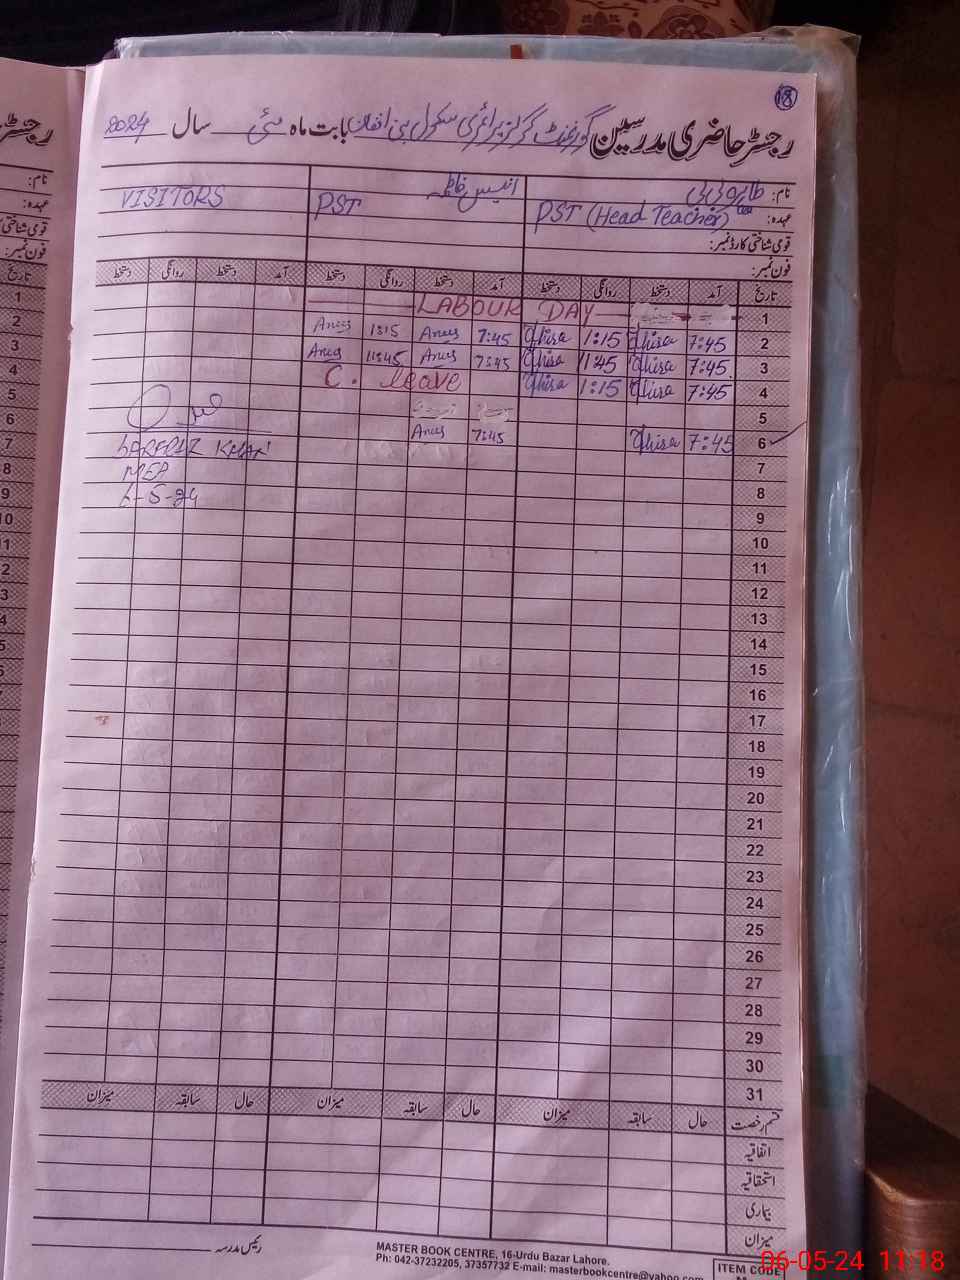 18
رجسٹر حاضری مدرسین گورنمنٹ گرلز پرائمری سکول بنی افغان بابت ماہ مئی سال 2024
نام: طاہرہ بی بی
انیس فاطمہ
VISITORS
عہدہ: PST (Head Teacher)
PST
قومی شناختی کارڈ نمبر:
فون نمبر:
تاریخ آمد دستخط روانگی دستخط آمد دستخط روانگی دستخط آمد دستخط روانگی دستخط
1 LABOUR DAY
2 7:45 1:15 7:45 Anees 1:15 Anees
3 7:45 11:45 7:45 Anees 11:45 Anees
4 7:45 1:15 C. leave
5
6 7:45 7:45 Anees
7 KHAN
MEA
8 6-5-24
9
10
11
12
13
14
15
16
17
18
19
20
21
22
23
24
25
26
27
28
29
30
31
قسم رخصت حال سابقہ میزان حال سابقہ میزان حال سابقہ میزان
اتفاقیہ
استحقاقیہ
بیماری
میزان
رئیس مدرسہ
MASTER BOOK CENTRE, 16-Urdu Bazar Lahore.
Ph: 042-37232205, 37357732 E-mail: masterbookcentre@yahoo.com
ITEM CODE
06-05-24 11:18
رجسٹر
نام:
عہدہ:
فون نمبر:
تاریخ